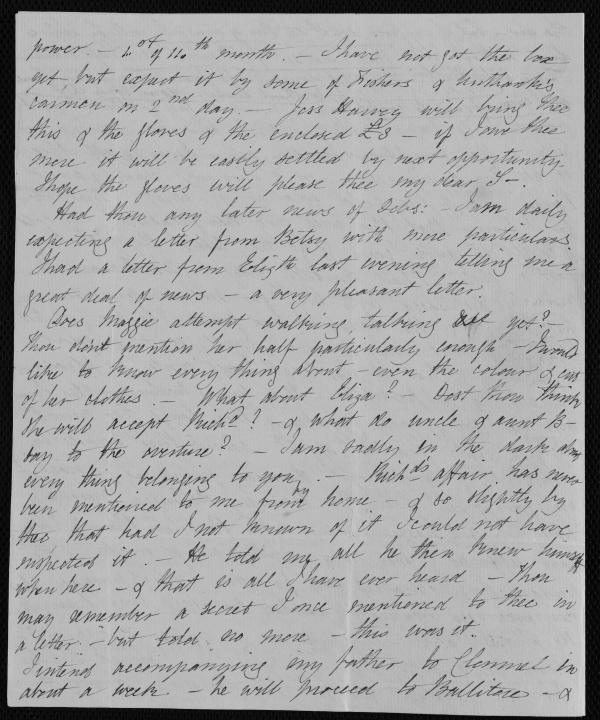 power. – 1st of 4th month. – I have not got the box
yet, but expect it by some of Fishers & Unthank's
carmen on 2nd day. – Joss Harvey will bring thee
this & the gloves & the enclosed £3 – if I owe thee
more it will be easily settled by next opportunity.
I hope the gloves will please thee my dear S–.
Had thou any later news of Debs: – I am daily
expecting a letter from Betsy with more particulars.
I had a letter from Elizth last evening telling me a
great deal of news – a very pleasant letter.
Does Maggie attempt walking, talking &c yet? –
thou didn't mention her half particularly enough – I would
like to know every thing about – even the colour & cut
of her clothes. – What about Eliza? – Dost thou think
she will accept Richd? – & what do uncle & aunt B–
say to the overture? – I am sadly in the dark about
every thing belonging to you. – Richds affair has never
been mentioned to me from by home – & so slightly by
thee that had I not known of it I could not have
suspected it. – He told me all he then knew himself
when here – & that is all I have ever heard – Thou
may remember a secret I once mentioned to thee in
a letter – but told no more – this was it.
I intend accompanying my father to Clonmel in
about a week – he will proceed to Ballitore – &